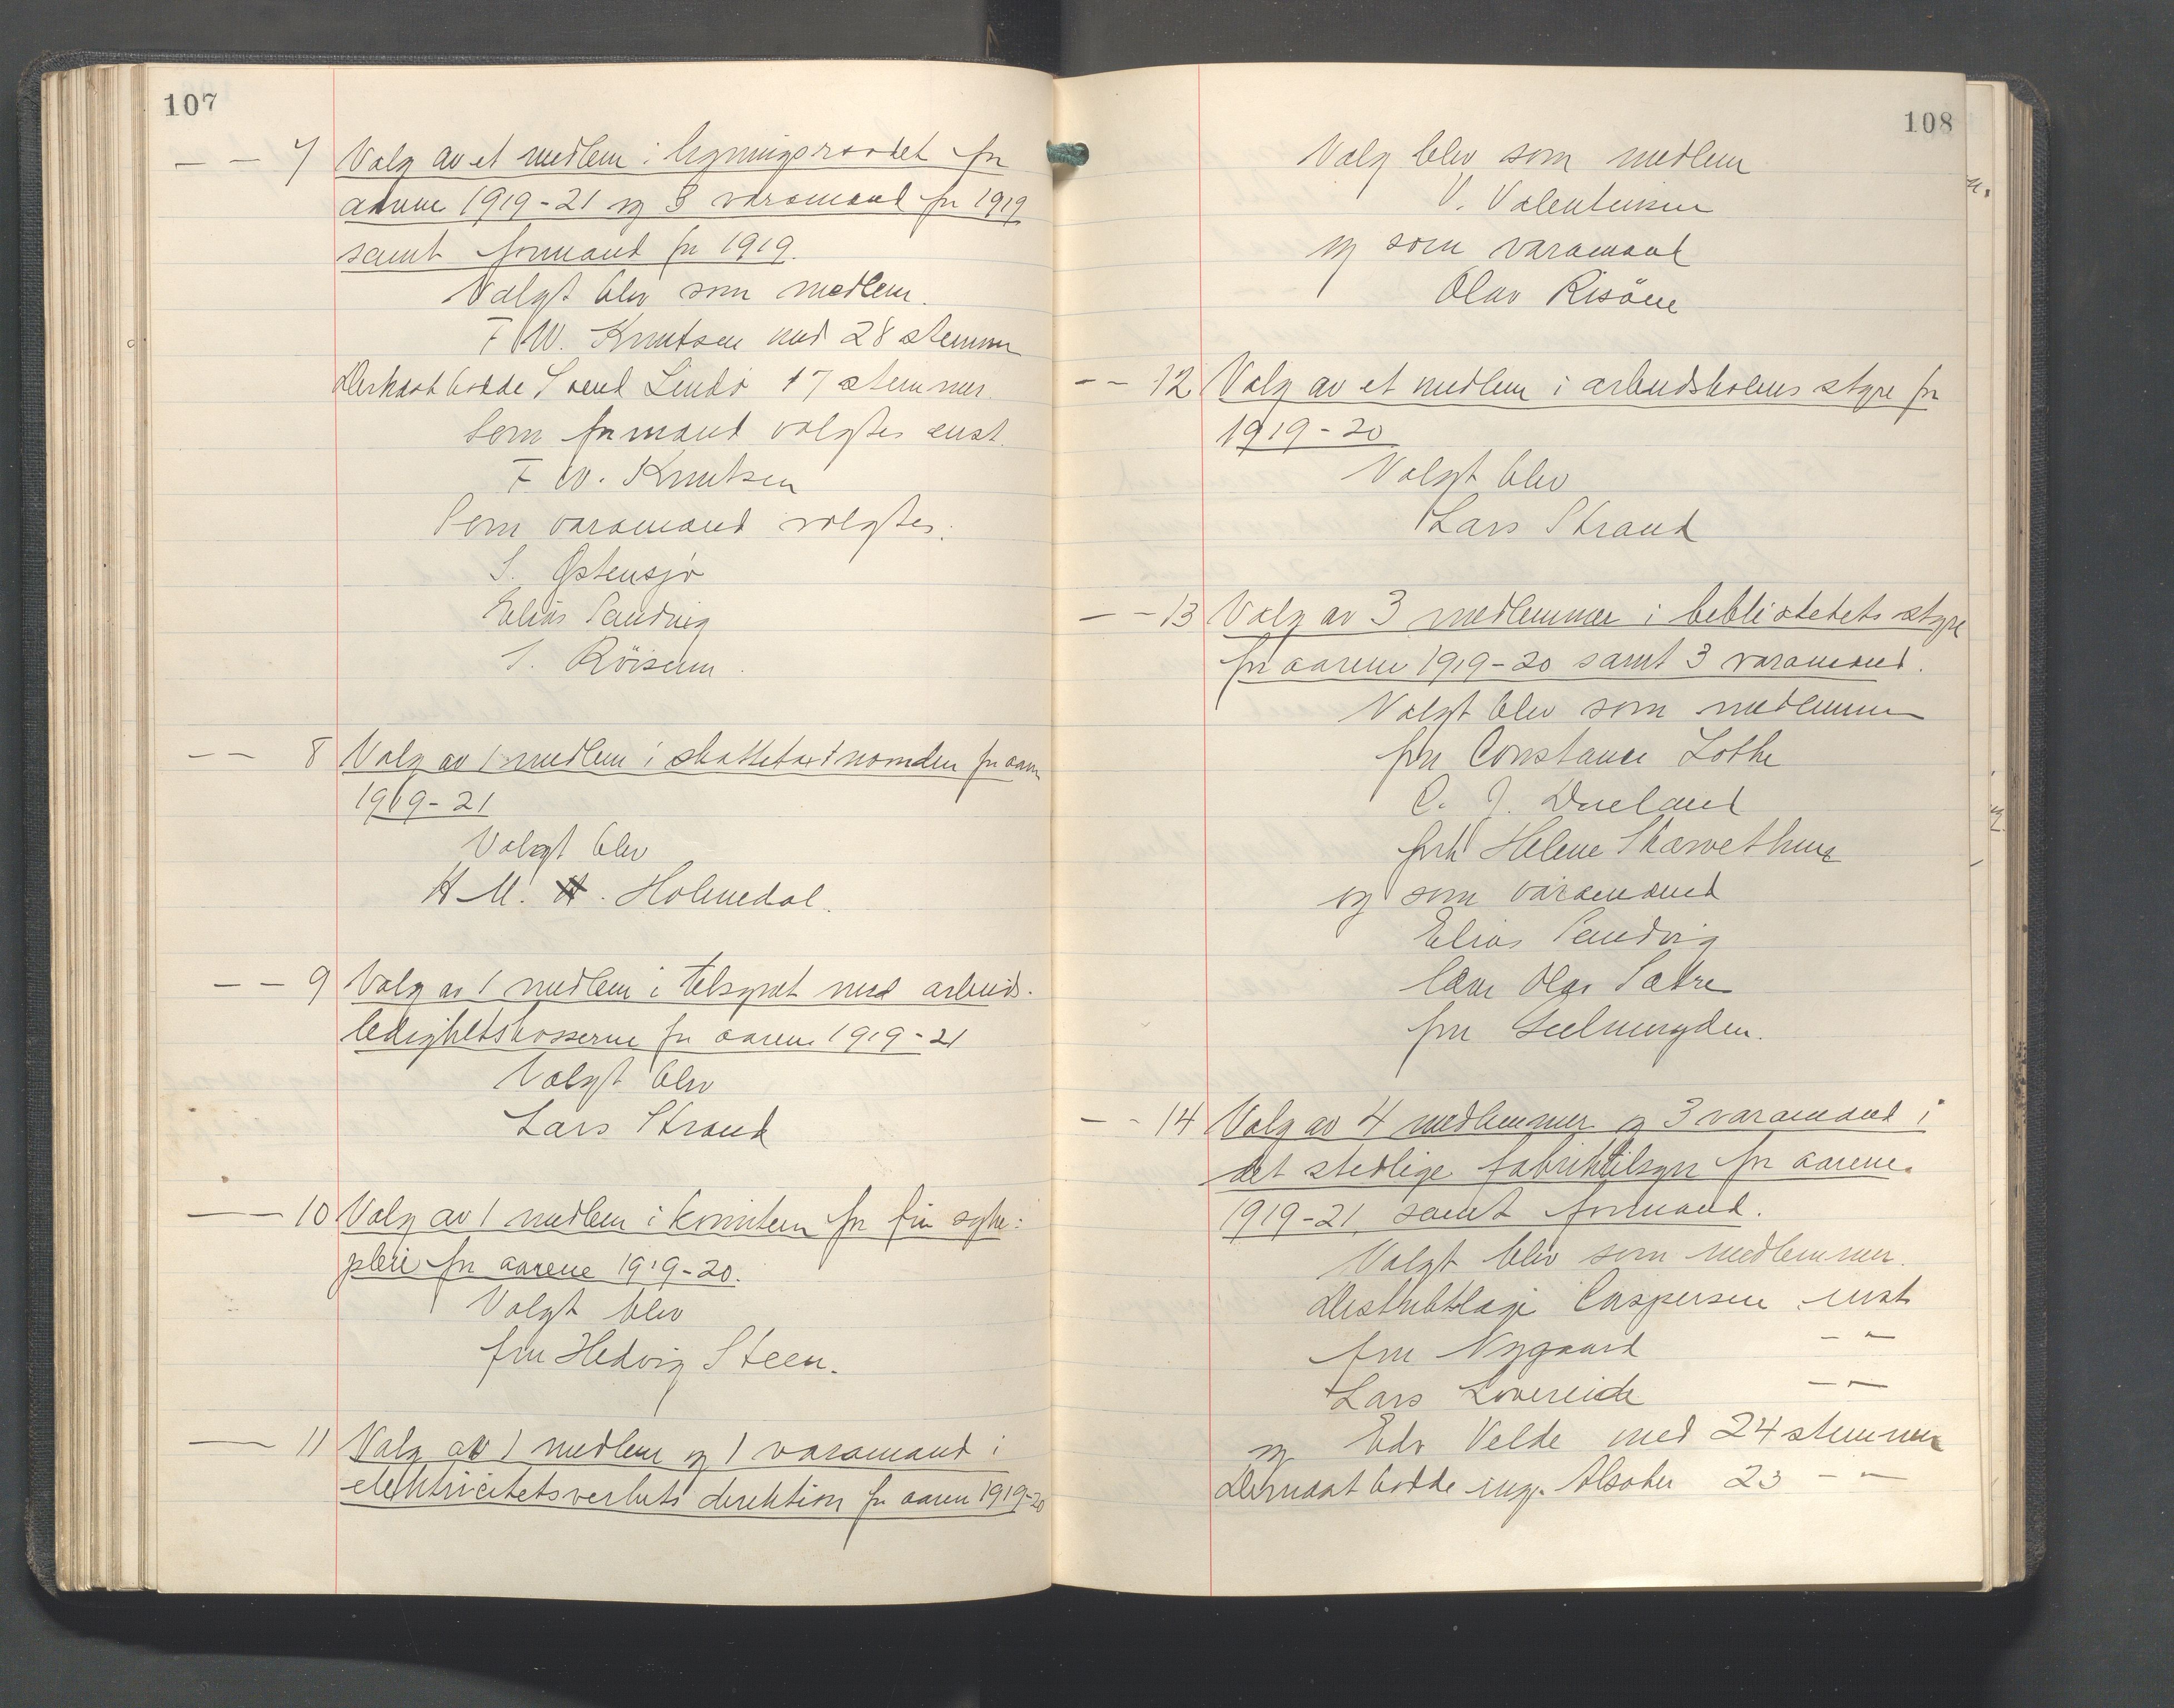 107
— — 7 Valg av et medlem i ligningsraadet for
aarene 1919-21 og 3 varamænd for 1919
samt formand for 1919.
Valgt blev som medlem.
F. W. Knutsen med 28 stemmer
Dernæst hadde Svend Lindø 17 stemmer.
Som formand valgtes enst.
F. W. Knutsen
Som varamænd valgtes:
S. Østensjø
Elias Sandvig
S. Röisum.
— — 8 Valg av 1 medlem i skattetaxtnemden for aarene
1919-21
Valgt blev
H M. Holmedal.
— — 9 Valg av 1 medlem i tilsynet med arbeids-
ledighetskasserne for aarene 1919-21
Valgt blev
Lars Strand
— — 10 Valg av 1 medlem i komiteen for fri syke-
pleie for aarene 1919-20.
Valgt blev
fru Hedvig Steen.
— — 11 Valg av 1 medlem og 1 varamand i
elektricitetsverkets direktion for aarene 1919-20
108
Valg blev som medlem
V. Valentinsen
og som varamand
Olav Risöen
— — 12 Valg av et medlem i arbeidskolens styre for
1919-20
Valgt blev
Lars Strand
— — 13 Valg av 3 medlemmer i bebliotekets styre
for aarene 1919-20 samt 3 varamænd.
Valgt blev som medlemmer
fru Constance Lothe
C. J. Dueland
frk Helene
og som varamænd
Elias Sandvig
lærer Olav Sætre
fru
— - 14 Valg av 4 medlemmer og 3 varamænd i
det stedlige fabriktilsyn for aarene
1919-21, samt formand.
Valgt blev som medlemmer.
Distriktslæge Caspersen enst
fru Nygaard — " —
Lars Lovereide — " —
og Edv Velde med 24 stemmer
Dernæst hadde ing. Alsaker 23 — " —